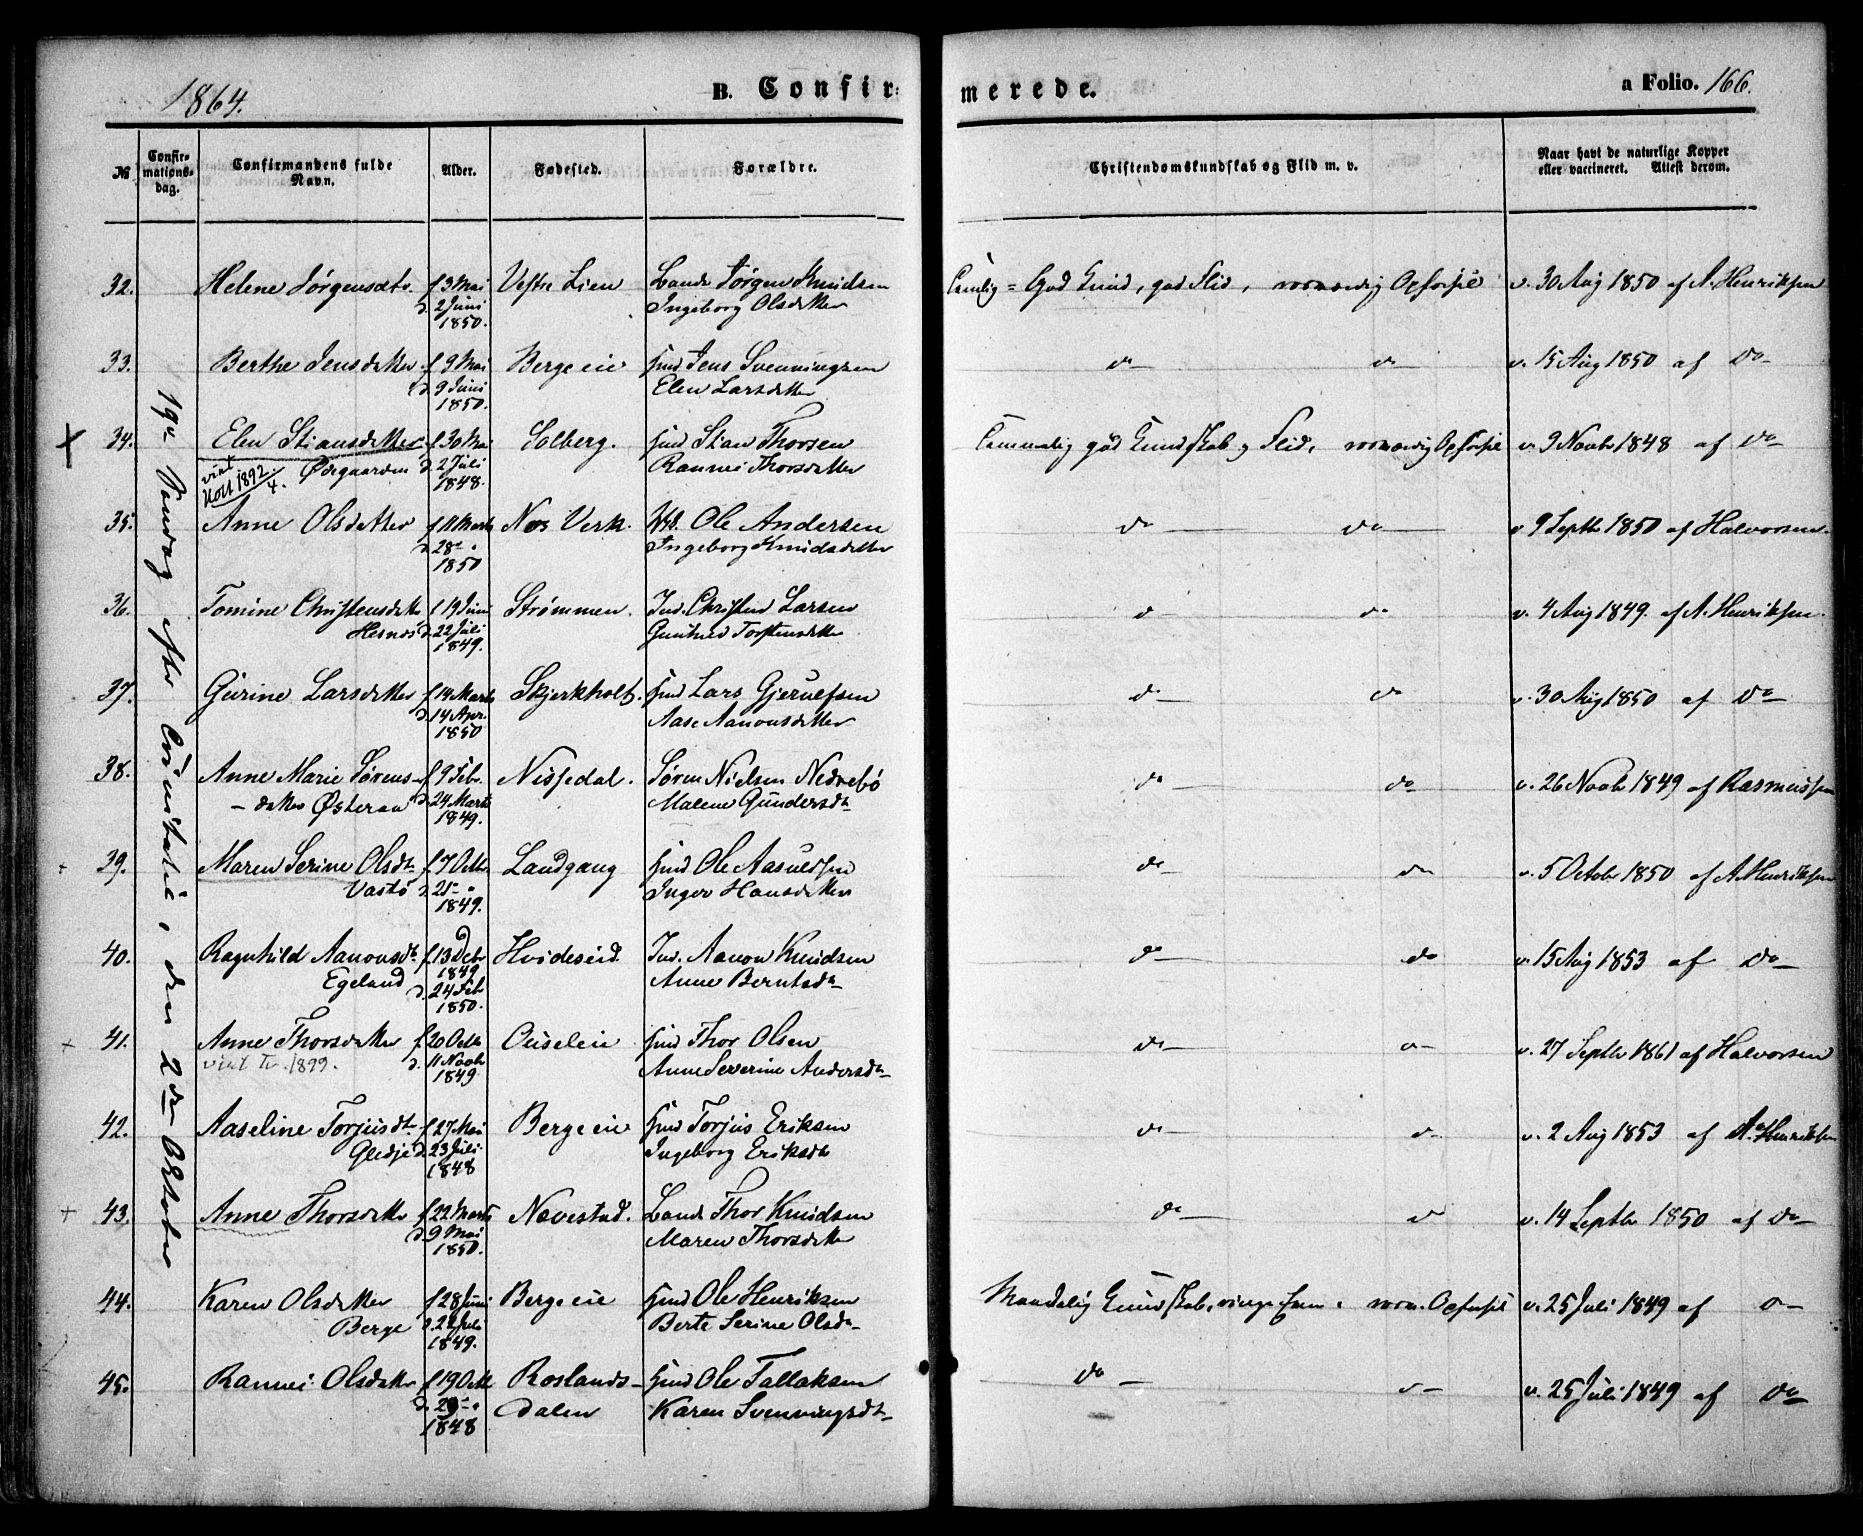 1864.
B. Confir-
merede.
a Folio. 166.
№
Confir-
mations-
dag.
Confirmandens fulde
Navn.
Alder.
Fødested.
Forældre.
Christendomskundskab og Flid m. v.
Naar havt de naturlige Kopper
eller vaccineret. Attest derom.
19de Søndag efter Trinitatis, den 2den October
32. Helene Jørgensdtr. f. 3 Mai Vestre Lien Gaardm. Jørgen Knudsen
d. 2 Juni Ingeborg Olsdatter
1850.
Temlig God Kund, god Flid, sædvanlig Opførsel v. 30 Aug 1850 af A. Henriksen
33. Berthe Jensdatter f. 9 Mai Berge eie Hmd Jens Svenningsen
d. 9 Juni Elen Larsdatter
1850.
do do v. 15 Aug 1850 af do
34. Elen Stiansdatter f. 30 Mai Solberg. Hmd Stian Thorsen
Ødegaarden d. 2 Juli Rannei Thorsdatter
viet Holt 1892/4. 1848.
Temmelig god Kundskab og Flid, Opførsel v. 9 Novbr 1848 af do
35. Anne Olsdatter f. 11 Marts Næs Verk. Ole Andersen
d. 28 Ingeborg Knudsdatter
1850
do do v 9 Septbr 1850 af Halvorsen.
36. Tomine Christensdatter f 19 Juni Strømmen. Ind. Christen Larsen
Hesnæs d. 22 Juli Gunhild Torstensdatter
1849.
do do v. 4 Aug 1849. af A. Henriksen
37. Gurine Larsdatter f. 14 Marts Skjerkholt. Hmd Lars Gjerulfsen
d. 14 Apr. Aase Aanonsdatter
1850
do do v. 30 Aug 1850 af do
38. Anne Marie Sørens- f. 9 Febr. Nissedal. Søren Nielsen Nedrebø
datter Østeraa d. 24 Marts Malene Gundersdtr
1849.
do do v. 26 Novbr 1849 af Rasmussen
39. Maren Serine Olsdtr f. 7 Octbr. Landgang Hmd Ole Aasulfsen
Vastø d. 21 Inger Hansdatter
1849.
do do v. 5 Octobr 1850 af A. Henriksen
40. Ragnhild Aanonsdtr f. 13 Decbr 1849 Hvideseid. Ind. Aanon Knudsen
Egeland d. 24 Feb 1850. Anne Berntsdtr
do do v. 15 Aug 1853 af do
41. Anne Thorsdatter f. 20 Octbr Ouseleie Hmd Thor Olsen
viet Tv. 1899. d. 11 Novbr Anne Severine Andersdtr
1849
do do v. 27 Septbr 1861 af Halvorsen
42. Aaseline Torjusdtr f. 27 Mai Berge eie Hmd Torjus Eriksen
Gledje d. 23 Juli Ingeborg Eriksdtr
1848
do do v. 2 Aug 1853 af A. Henriksen
43. Anne Thorsdatter f. 22 Marts Navestad. Gaardm. Thor Knudsen
d. 9 Mai Maren Thorsdatter
1850.
do do v. 14 Septbr 1850 af do
44. Karen Olsdatter f. 28 Juni Berge eie Hmd Ole Henriksen
Berge d. 22 Juli Berte Serine Olsdtr
1849.
Maadelig Kundskab, ringe Evne, Opførsel v. 25 Juli 1849 af do
45. Rannei Olsdatter f. 19 Octbr Roslands- Hmd Ole Tallaksen
d. 29 dalen Karen Svenningsdtr
1848
do do v. 25 Juli 1849 af do